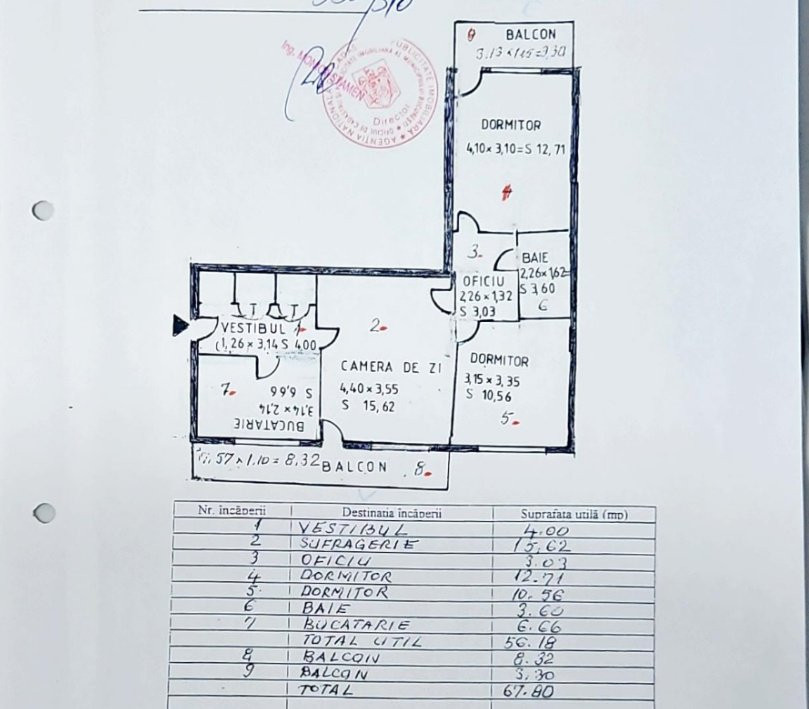 BALCON
3.13 × 1.15 = 3,30
9
Ing. MON
STAMEN
Director
DORMITOR
4,10 × 3,10 = S 12,71
4
3.
BAIE
2,26 × 1,62=
S 3,60
6
OFICIU
2,26 × 1,32
S 3,03
VESTIBUL 1.
(1,26 × 3,14 S 4,00
2.
CAMERA DE ZI
4,40 × 3,55
S 15,62
DORMITOR
3,15 × 3,35
S 10,56
5.
7.
BUCATARIE
3,14 × 2,14
S 6,66
,57 × 1,10 = 8,32
BALCON 8.
Nr. încăperii | Destinatia încăperii | Suprafata utilă (mp)
1 | VESTIBUL | 4.00
2 | SUFRAGERIE | 15,62
3 | OFICIU | 3.03
4 | DORMITOR | 12.71
5 | DORMITOR | 10.56
6 | BAIE | 3.60
7 | BUCATARIE | 6.66
TOTAL UTIL | 56.18
8 | BALCON | 8.32
9 | BALCON | 3,30
TOTAL | 67.80